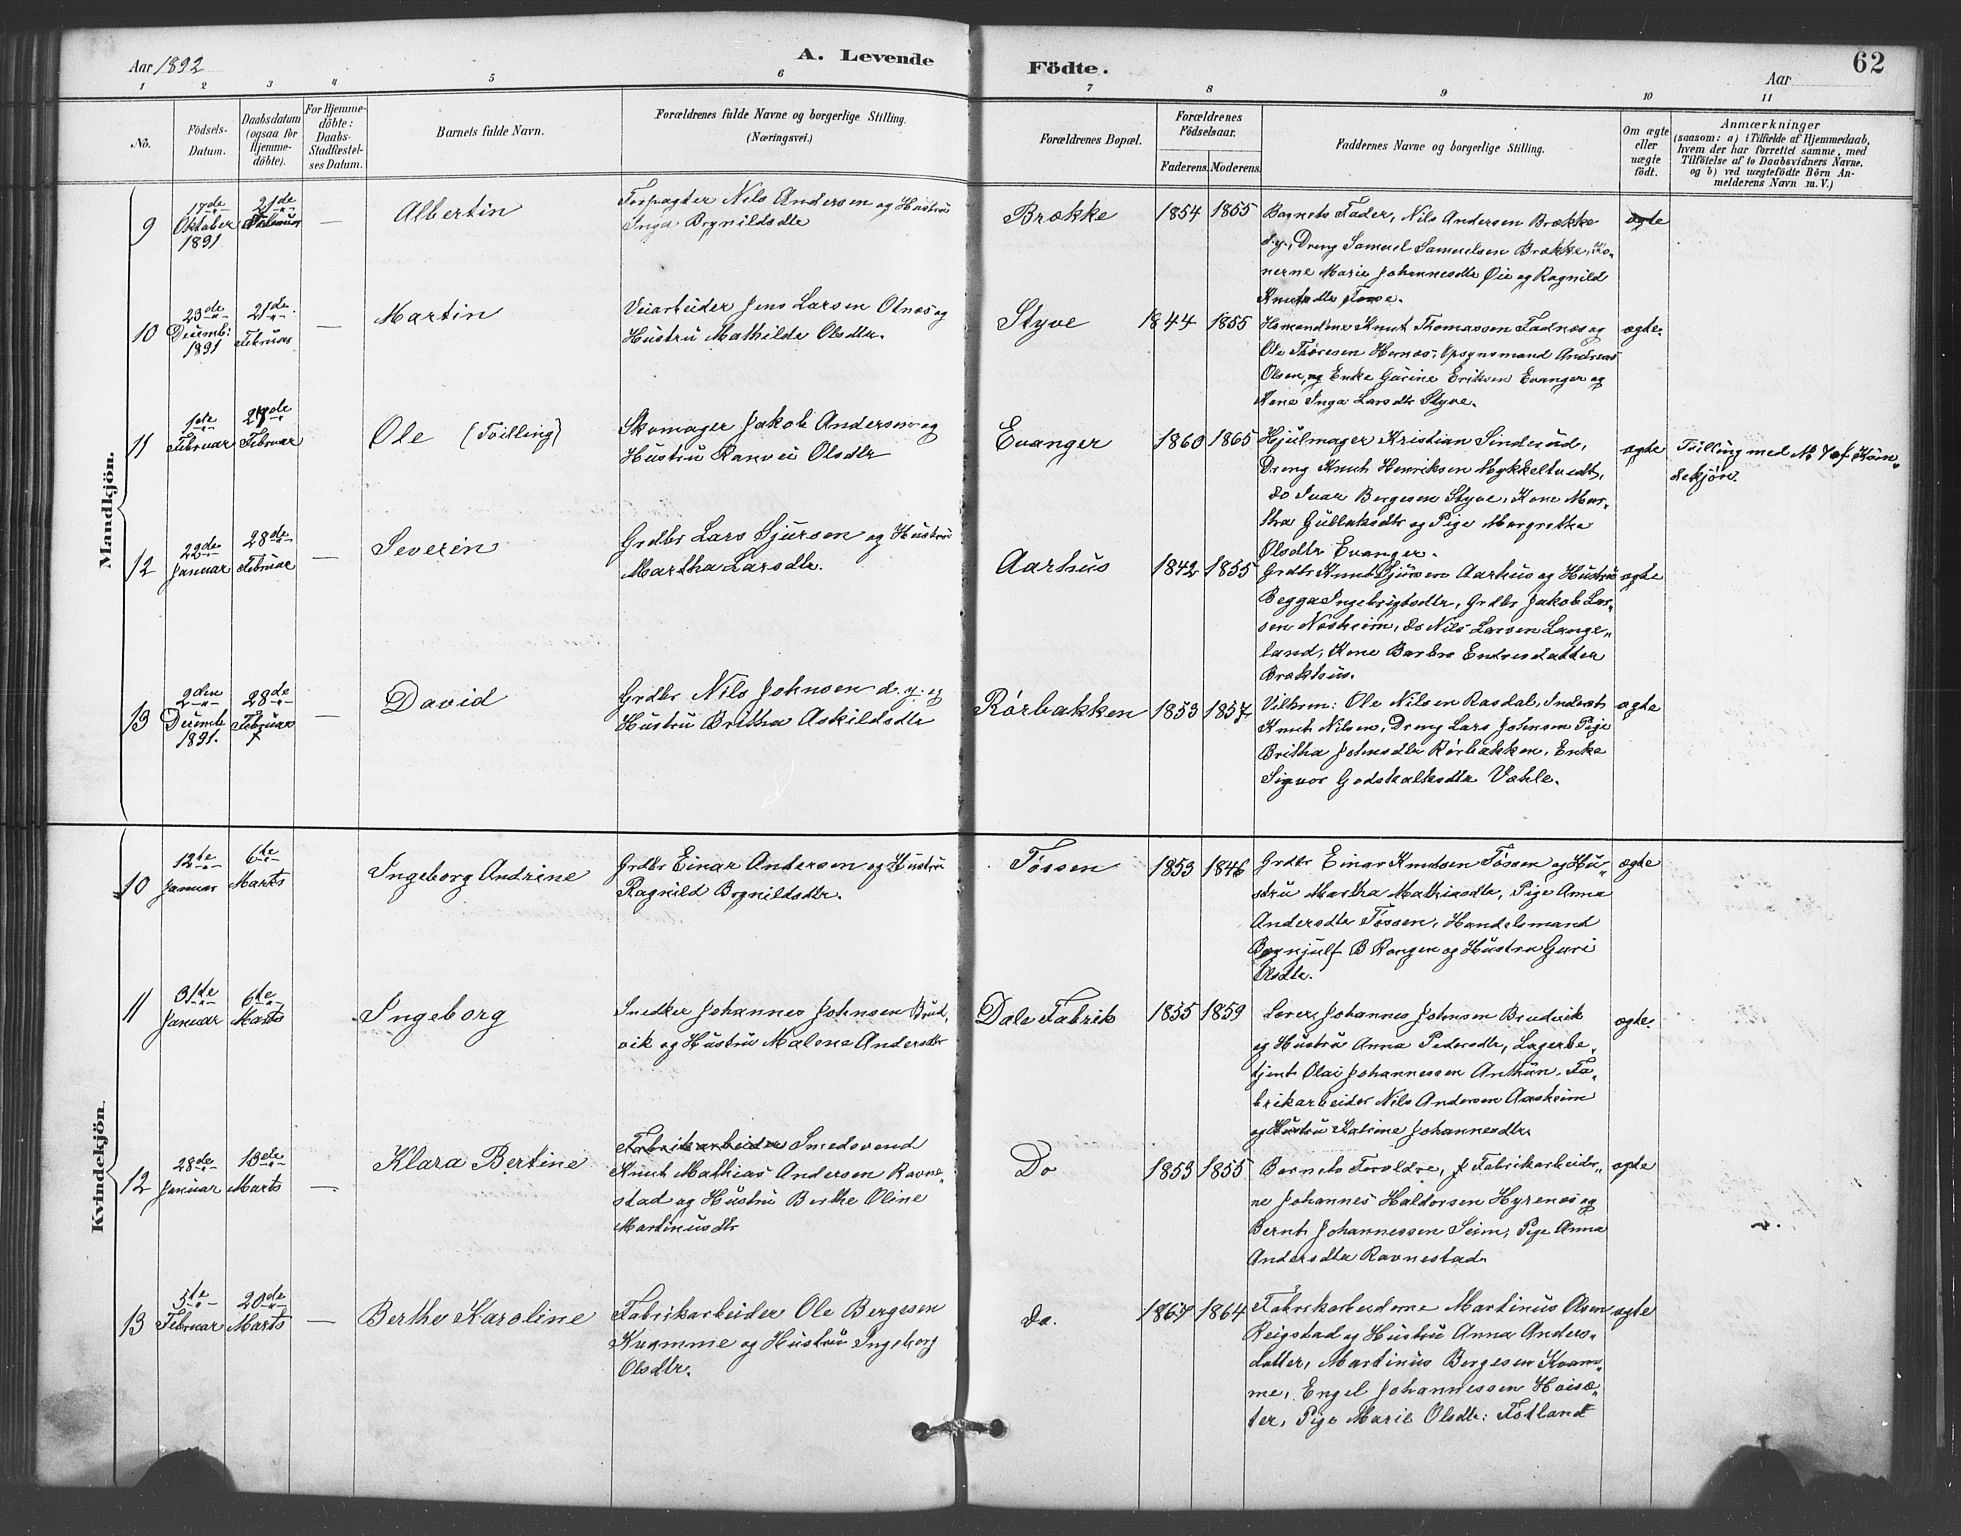 Aar 1892
A. Levende
Födte.
Aar
62
1 2 3 4 5 6 7 8 9 10 11
No.
Födsels-
Datum.
Daabsdatum
(ogsaa för
Hjemme-
döbte).
For Hjemme-
döbte:
Daabs-
Stadfæstel-
ses Datum.
Barnets fulde Navn.
Forældrenes fulde Navne og borgerlige Stilling.
(Næringsvei.)
Forældrenes Bopæl.
Forældrenes
Födselsaar.
Faderens. Moderens.
Faddernes Navne og borgerlige Stilling.
Om ægte
eller
uægte
födt.
Anmærkninger
(saasom: a) i Tilfælde af Hjemmedaab,
hvem der har forrettet samme, med
Tilföielse af to Daabsvidners Navne,
og b) ved uægtefödte Börn An-
melderens Navn m. V.)
Mandkjön.
9
17de
Oktober
1891
21de
Februar
—
Albertin
Forpagter Nils Andersen og Hustru
Inga Brynildsdtr
Brække
1854 1855
Barnets Fader, Nils Andersen Brække
d.y., Dreng Samuel Samuelsen Brække, Ko-
nerne Marie Johannesdtr Øie og Ragnild
Knutsdtr Fosse.
ægte
10
23de
Decemb:
1891
21de
Februar
—
Martin
Veiarbeider Jens Larsen Otnes og
Hustru Mathilde Olsdtr.
Styve
1844 1855
Husmændene Knut Thomassen Fadnes og
Ole Thoresen Hernes, Opsynsmand Andreas
Olsen, og Enke Gurine Eriksen Evanger og
Kone Inga Larsdtr Styve.
ægte.
11
1ste
Februar
27de
Februar
Ole (Tvilling)
Skomager Jakob Andersen og
Hustru Ranvei Olsdtr
Evanger
1860 1865
Hjulmager Kristian Sinderud,
Dreng Knut Henriksen Mykkeltvedt,
do Ivar Bergesen Styve, Kone Mar-
tha Gullaksdtr og Pige Margrethe
Olsdtr Evanger.
ægte
Tvilling med No 7 af Kvin-
dekjøn.
12
22de
Januar
28de
Februar
—
Severin
Grdbr Lars Sjursen og Hustru
Martha Larsdtr.
Aarhus
1842 1855
Grdbr Knut Sjursen Aarhus og Hustru
Begga Ingebrigtsdtr, Grdbr Jakob Lar-
sen Næsheim, do Nils Larsen Lange-
land, Kone Barbro Endresdatter
Brækhus.
ægte
13
2den
Decemb
1891.
28de
Februar
—
David
Grdbr Nils Johnsen d. y. og
Hustru Britha Askildsdtr
Rørbakken
1853 1857
Vilhrm: Ole Nilsen Rasdal, Inderst
Knut Nilsen, Dreng Lars Johnsen Pige
Britha Johnsdtr Rørbakken, Enke
Signor Godskalksdtr Væhle.
ægte
Kvindekjön.
10
12te
Januar
6te
Marts
Ingeborg Andrine
Grdbr Einar Andersen og Hustru
Ragnild Brynildsdtr.
Tøssen
1853 1846
Grdbr Einar Knudsen Tøssen og Hu-
stru Martha Mathiasdtr, Pige Anna
Andersdtr Tøssen, Handelsmand
Brynjulf B Rongen og Hustru Guri
Olsdtr.
ægte
11
31te
Januar
6te
Marts
Ingeborg
Snedker Johannes Johnsen Brud-
vik og Hustru Malene Andersdtr
Dale Fabrik
1855 1859
Lærer Johannes Johnsen Brudvik
og Hustru Anna Pedersdtr, Lagerbe-
tjent Olai Johannessen Anthun, Fa-
brikarbeider Nils Andersen Aasheim
og Hustru Katrine Johannesdtr
ægte.
12
28de
Januar
13de
Marts
—
Klara Bertine
Fabrikarbeider Smedsvend
Knut Mathias Andersen Ravne-
stad og Hustru Berthe Oline
Martinusdtr
Do
1853 1855
Barnets Foreldre, Fabrikarbeider-
ne Johannes Haldorsen Hyrenes og
Bernt Johannessen Seim, Pige Anna
Andersdtr Ravnestad.
ægte
13
5te
Februar
20de
Marts
—
Berthe Karoline
Fabrikarbeider Ole Bergesen
Kvamme og Hustru Ingeborg
Olsdtr.
do.
1864
Fabrikarbeiderne Martinus Olsen
Reigstad og Hustru Anna Anders-
datter, Martinus Bergesen Kvam-
me, Engel Johannessen Høisæ-
ter, Pige Marie Olsdtr: Fotland
ægte